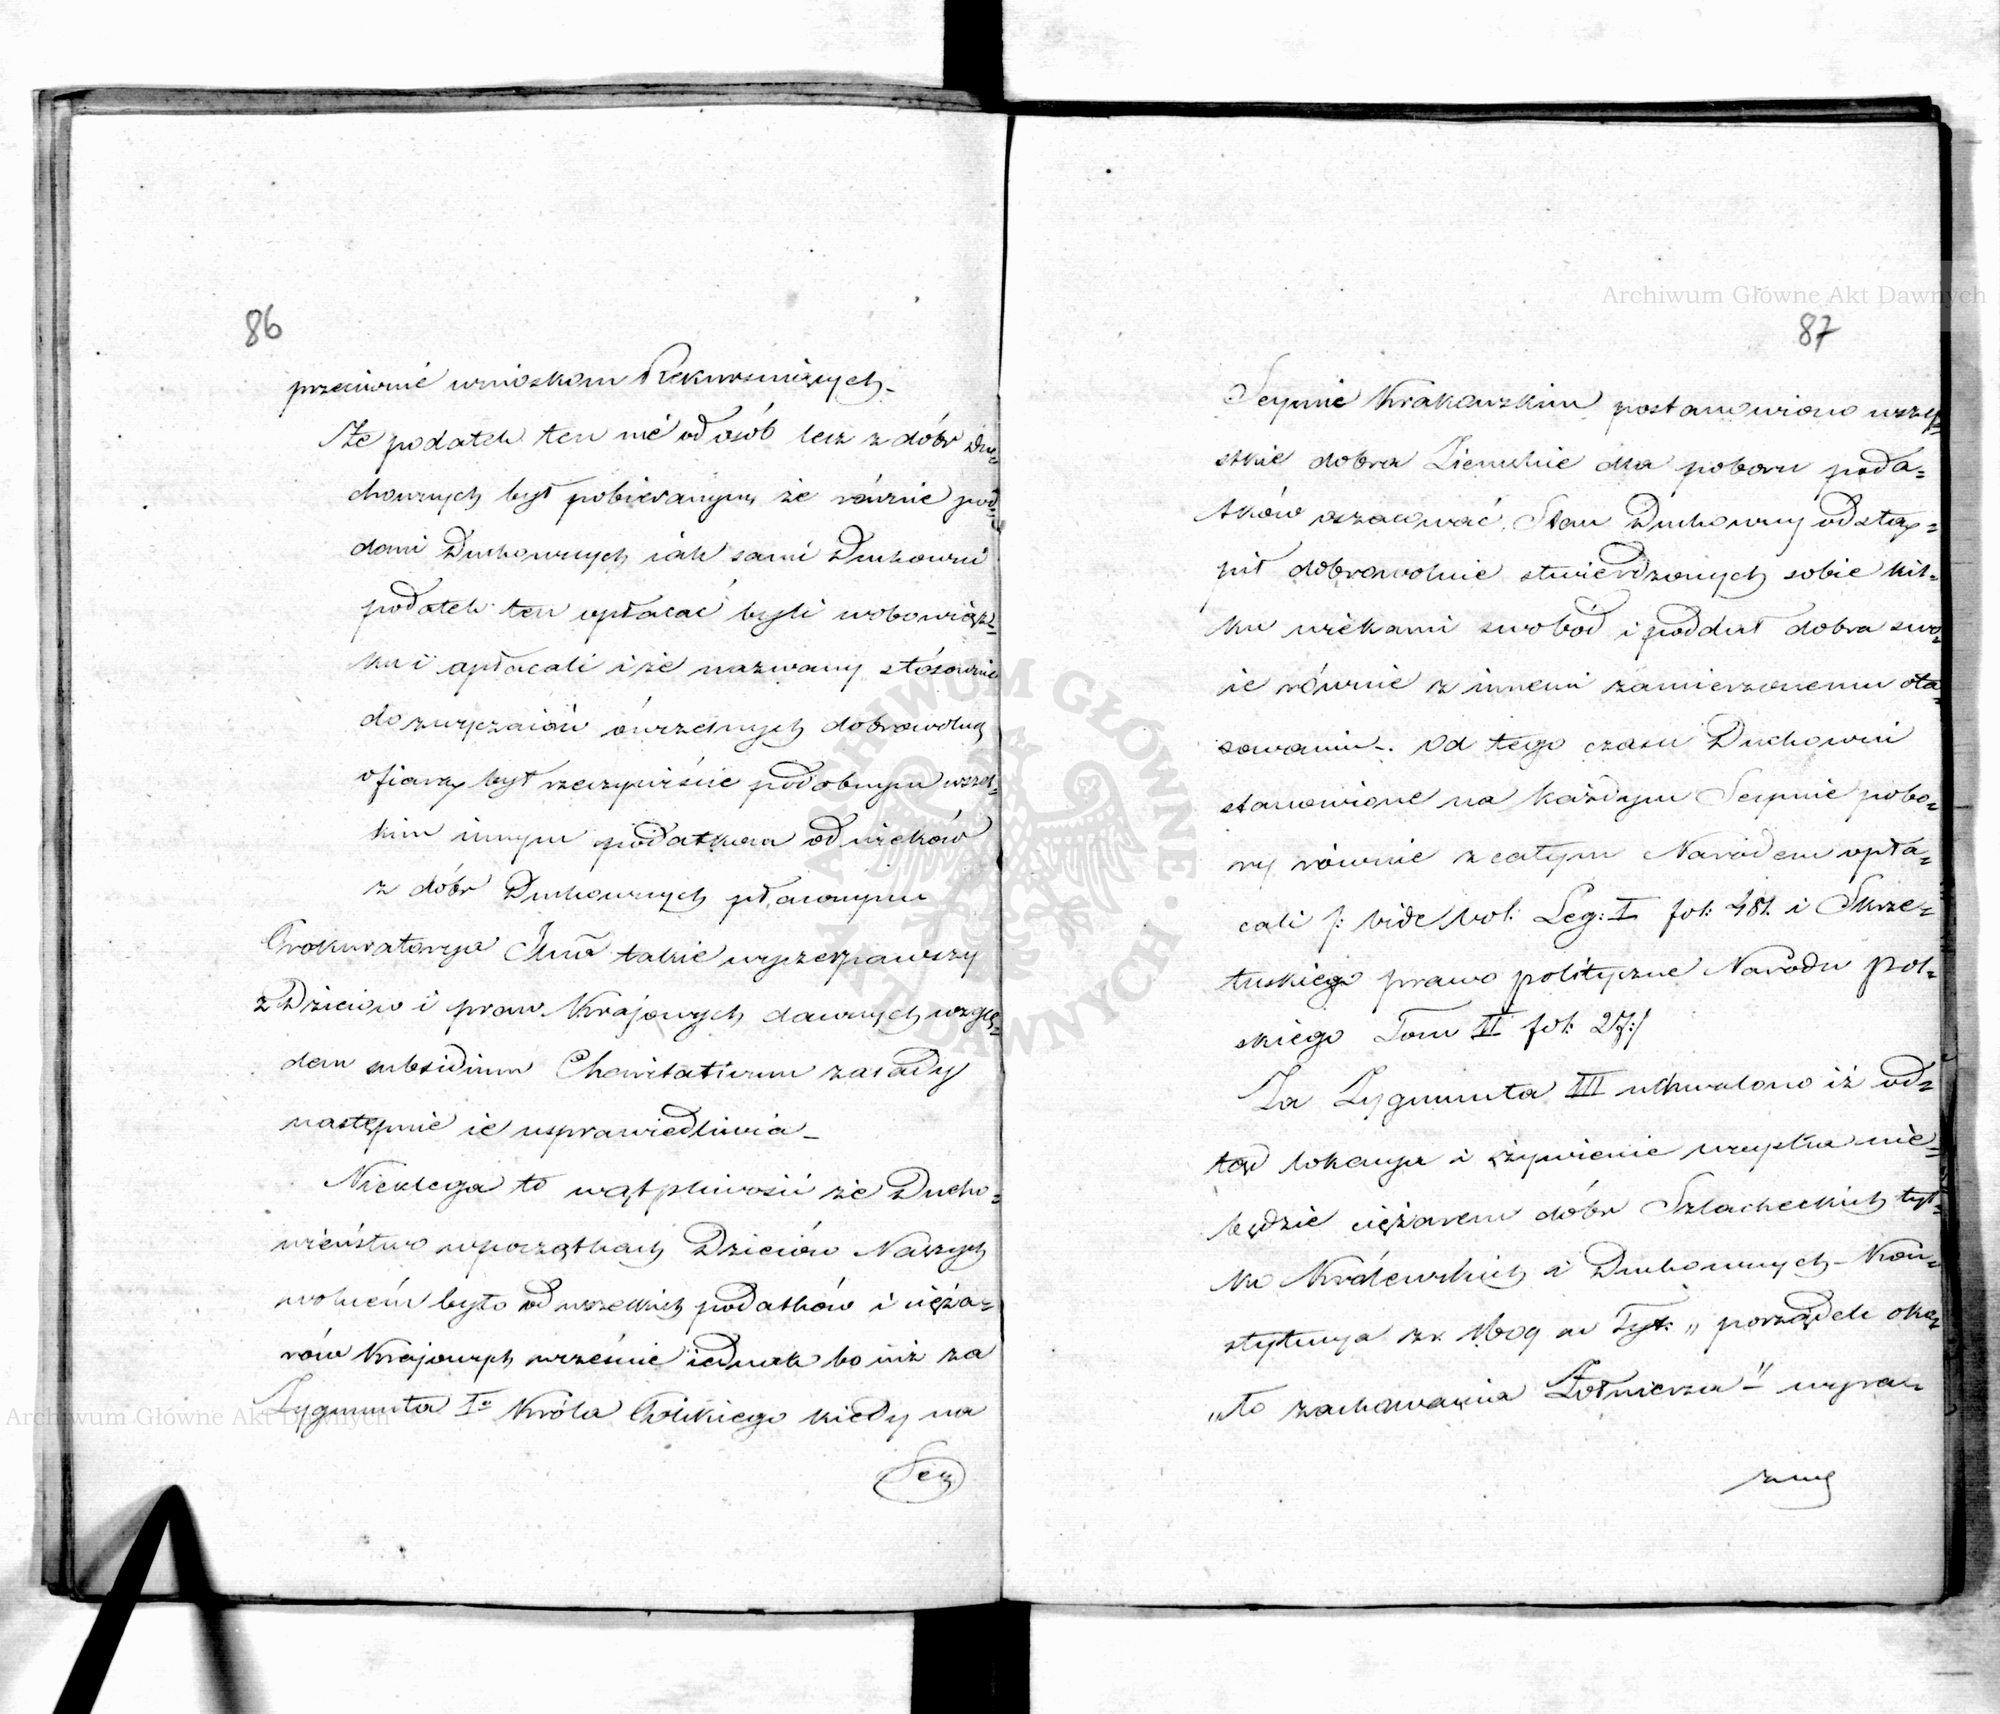 86
przeciwnie wnioskom Rekursuiących.
Że podatek ten nie od osób lecz z dóbr Du=
chownych był pobieranym, że równie pod=
dani Duchownych iak sami Duchowni
podatek ten opłacać byli w obowiąz=
ku i opłacali i że nazwany stósownie
do zwyczaiów ówczesnych dobrowolną
ofiarą, był rzeczywiście podobnym wszel=
kim innym podatkom od wieków
z dóbr Duchownych płaconym
Prokuratorya takie wyczerpawszy
z Dzieiów i praw Kraiowych dawnych wzglę=
dem subsidium Charitativum zasady
następnie ie usprawiedliwia—
Nieulega to wątpliwości że Ducho=
wieństwo w początkach Dzieiów Naszych
wolném było od wszelkich podatków i cięża=
rów Kraiowych wcześnie iednak bo iuż za
Zygmunta Iº Króla Polskiego kiedy na
Sey
87
Seymie Krakowskim postanowiono wszy=
stkie dobra Ziemskie dla poboru poda=
tków oszacować, Stan Duchowny odstą=
pił dobrowolnie stwierdzonych sobie kil=
ku wiekami swobód i poddał dobra swo=
ie równie z innemi zamierzonemu ota=
xowaniu. Od tego czasu Duchowni
stanowione na każdym Seymie pobo=
ry równie z całym Narodem opła=
cali /: vide Vol: Leg: I fol: 481. i Skrze=
tuskiego prawo polityczne Narodu Pol=
skiego Tom II fol: 27:/
Za Zygmunta III uchwalono iż od=
tąd lokacya i żywienie woyska nie=
będzie ciężarem dóbr Szlacheckich tyl=
ko Królewskich i Duchownych. Kon=
stytucya z r. 1609 w Tyt: „ porządek oko=
„ło zachowania Żołnierza" wyra=
zną
Archiwum Główne Akt Dawnych
Archiwum Główne Akt Dawnych
ARCHIWUM GŁÓWNE AKT DAWNYCH